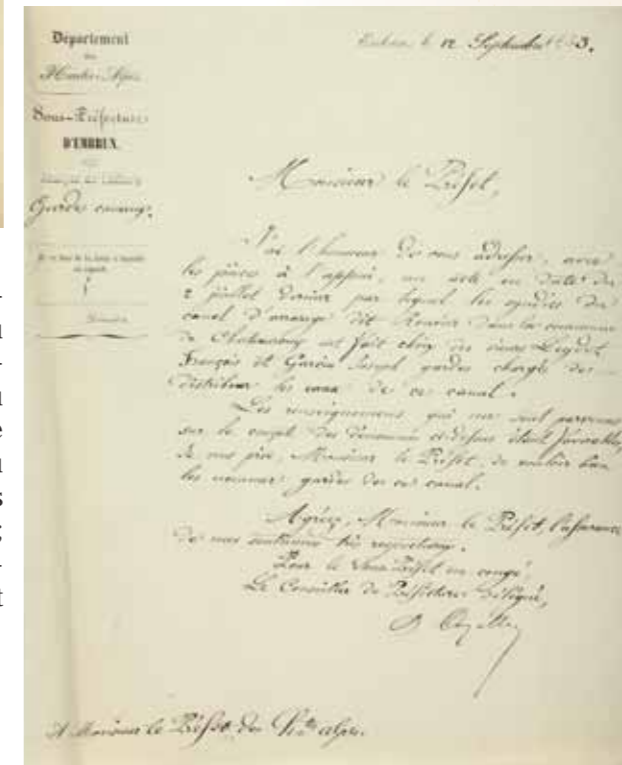 Département
des
Hautes Alpes
Sous-Préfecture
D'EMBRUN.
Gardes canaux.
Embrun le 12 Septembre 1853.
Monsieur le Préfet,
J'ai l'honneur de vous adresser, avec
les pièces à l'appui, un acte en date du
2 juillet dernier par lequel les syndics du
canal d'arrosage dit dans la commune
de Chateauroux ont fait choix des sieurs
François et Garcin Joseph gardes chargés de
distribuer les eaux de ce canal.
Les renseignements qui me sont parvenus
sur le compte des dénommés ci-dessus étant favorables,
je vous prie, Monsieur le Préfet, de vouloir bien
les nommer gardes de ce canal.
Agréez, Monsieur le Préfet, l'assurance
de mes sentiments très respectueux.
Pour le Sous-Préfet en congé,
Le Conseiller de Préfecture délégué,
A Monsieur le Préfet des Htes alpes.